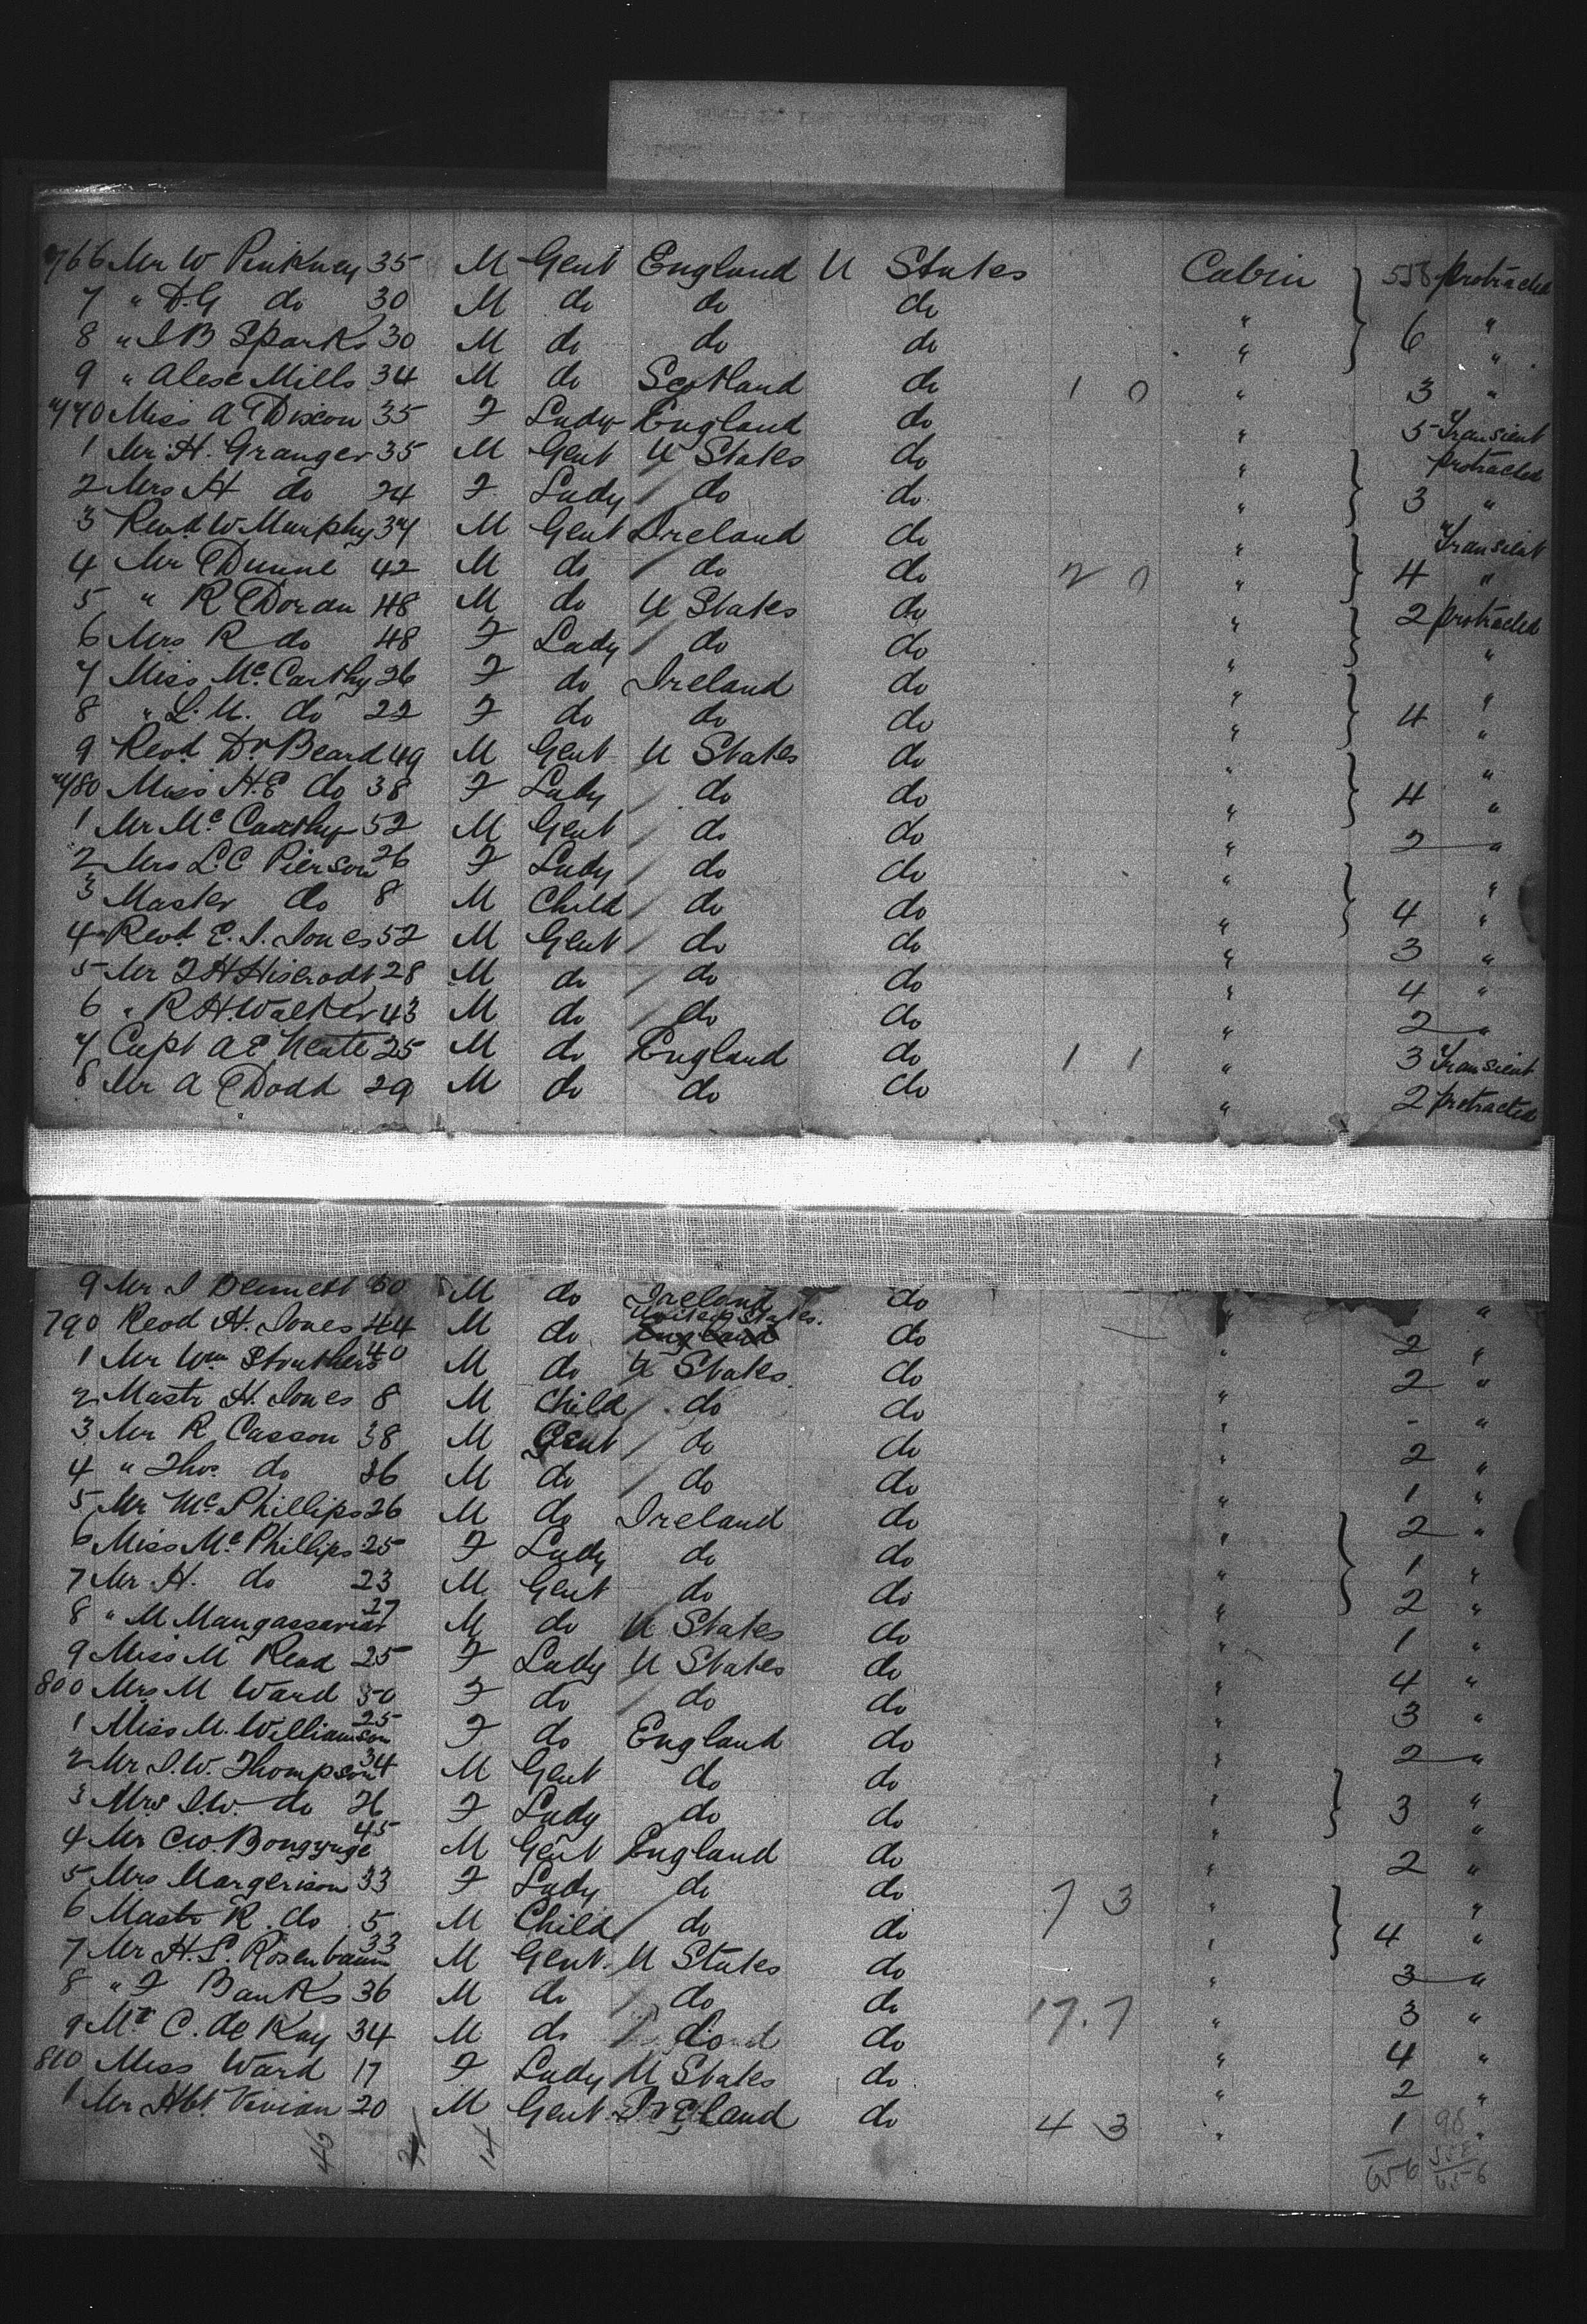 766 Mr W Pinkney 35 M Gent England U States Cabin 558 protracted
7 " D.G do 30 M do do do " "
8 " I B Sparks 30 M do do do " 6 "
9 " Alexr Mills 34 M do Scotland do 1 0 " 3 "
770 Miss A Dixon 35 F Lady England do " 5 Transient
1 Mr H. Granger 35 M Gent U States do " protracted
2 Mrs H do 24 F Lady do do " 3 "
3 Revd W Murphy 34 M Gent Ireland do " Transient
4 Mr Dunne 42 M do do do 2 0 " 4 "
5 " R Doran 48 M do U States do " 2 protracted
6 Mrs R do 48 F Lady do do " "
7 Miss Mc Carthy 26 F do Ireland do " "
8 " L.M. do 22 F do do do " 4 "
9 Revd Dr Beard 49 M Gent U States do " "
780 Miss H.E do 38 F Lady do do " 4 "
1 Mr Mc Carthy 52 M Gent do do " 2 "
2 Mrs L.C Pierson 26 F Lady do do " "
3 Master do 8 M Child do do " 4 "
4 Revd E. I. Jones 52 M Gent do do " 3 "
5 Mr F H Hiserodt 28 M do do do " 4 "
6 " R H Walker 43 M do do do " 2 "
7 Capt A E Neate 25 M do England do 1 1 " 3 Transient
8 Mr A Dodd 29 M do do do " 2 protracted
9 Mr I Bennett 60 M do Ireland do " "
790 Revd H. Jones 44 M do United States. England do " 2 "
1 Mr Wm Struthers 40 M do U States do 2 "
2 Mastr H. Jones 8 M Child do do " - "
3 Mr R Casson 38 M Gent do do " 2 "
4 " Thos. do 36 M do do do " 1 "
5 Mr Mc Phillips 26 M do Ireland do " 2 "
6 Miss Mc Phillips 25 F Lady do do " 1 "
7 Mr H. do 23 M Gent do do " 2 "
8 " M Mangassarian 27 M do U States do " 1 "
9 Miss M Read 25 F Lady U States do " 4 "
800 Mrs M Ward 50 F do do do " 3 "
1 Miss M. Williamson 25 F do England do " 2 "
2 Mr I.W. Thompson 34 M Gent do do " "
3 Mrs I.W. do 26 F Lady do do " 3 "
4 Mr C.W. Bongynge 45 M Gent England do " 2 "
5 Mrs Margerison 33 F Lady do do 7 3 " "
6 Mastr R. do 5 M Child do do " 4 "
7 Mr H.S. Rosenbaum 33 M Gent. U States do " 3 "
8 " F Banks 36 M do do do 17.7 " 3 "
9 Mr C. de Kay 34 M do do do " 4 "
810 Miss Ward 17 F Lady U States do " 2 "
1 Mr Hbt. Vivian 20 M Gent England do 4 3 " 1 "
98
558
656 656